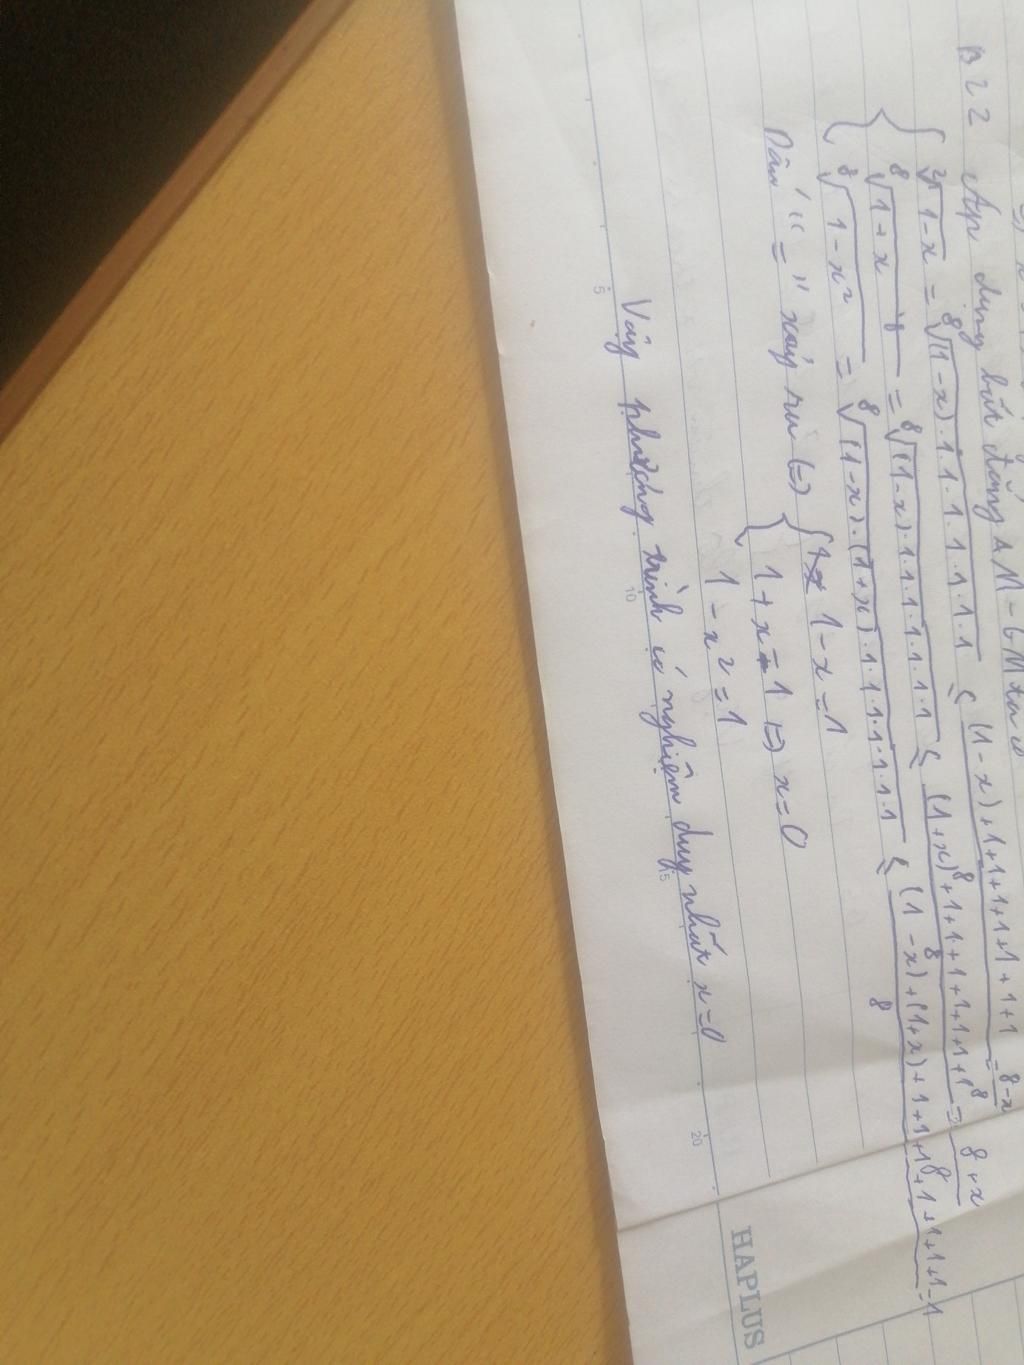 B22 Áp dụng bất đẳng AM-GM ta có
⁸√1-x = ⁸√(1-x).1.1.1.1.1.1.1 ≤ (1-x)+1+1+1+1+1+1 / 8 = 8-x / 8
⁸√1+x = ⁸√(1-x).1.1.1.1.1.1.1 ≤ (1+x)+1+1+1+1+1+1+1 / 8 = 8+x / 8
⁸√1-x² = ⁸√(1-x).(1+x).1.1.1.1.1.1 ≤ (1-x)+(1+x)+1+1+1+1+1+1 / 8 = 1
Dấu "=" xảy ra (=) 1-x=1
1+x=1 (=) x=0
1-x²=1
Vậy phương trình có nghiệm duy nhất x=0
5 10 15 20
HAPLUS